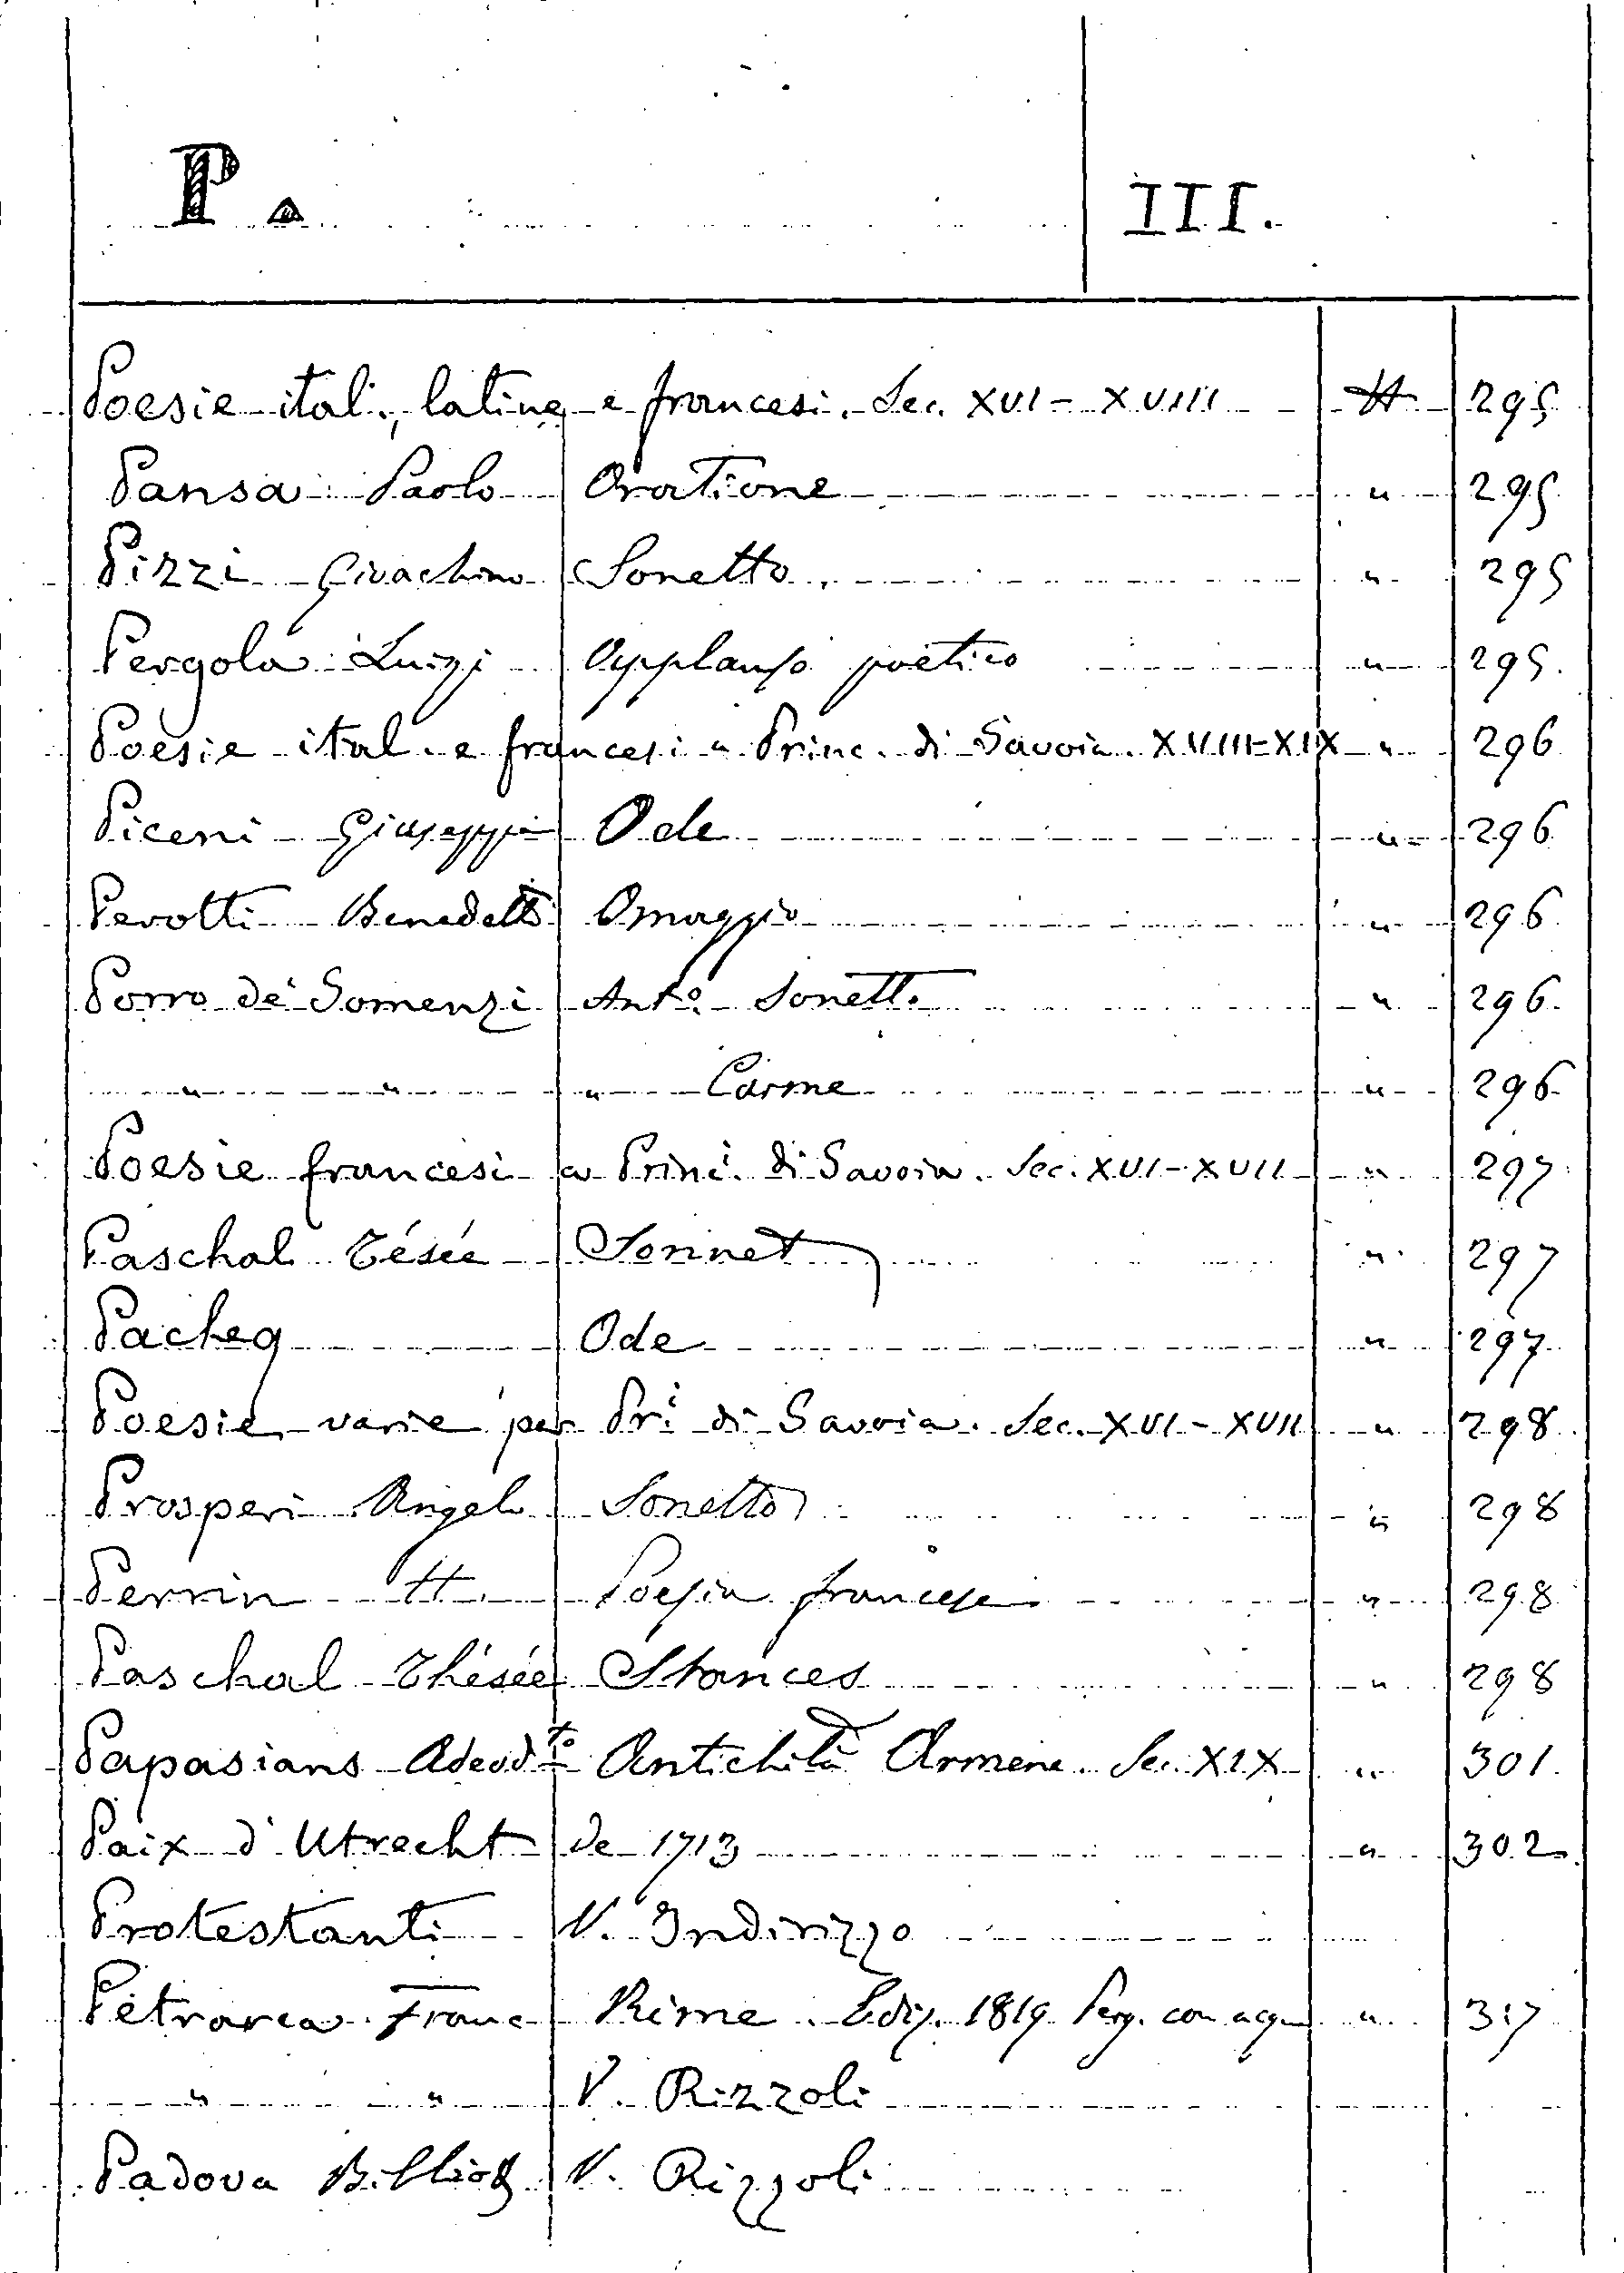 P. III.
Poesie ital., latine e francesi. Sec. XVI - XVIII H 295
Pansa Paolo Oratione " 295
Pizzi Givachino Sonetto " 295
Pergola Luigi Applauso poetico " 295.
Poesie ital. e francesi a Princ. di Savoia. XVIII-XIX " 296
Piceni Giuseppe Ode " 296
Perotti Benedetto Omaggio " 296
Porro de' Somenzi Ant.º Sonetto " 296.
" " " Carme " 296
Poesie francesi a Princ. di Savoia. Sec. XVI - XVII " 297
Paschal Tésée Sonnet " 297
Pacheq Ode " 297
Poesie varie per Pr.i di Savoia. Sec. XVI - XVII " 298
Prosperi Angelo Sonetto " 298
Perrin H. Poesia francese " 298
Paschal Thésée Stances " 298
Papasians Adeod.to Antichità Armene. Sec. XIX " 301.
Paix d'Utrecht de 1713 " 302.
Protestanti V. Indirizzo
Petrarca Franc Rime. Ediz. 1819 Perg. con acq " 317
" " V. Rizzoli
Padova Bibliot V. Rizzoli